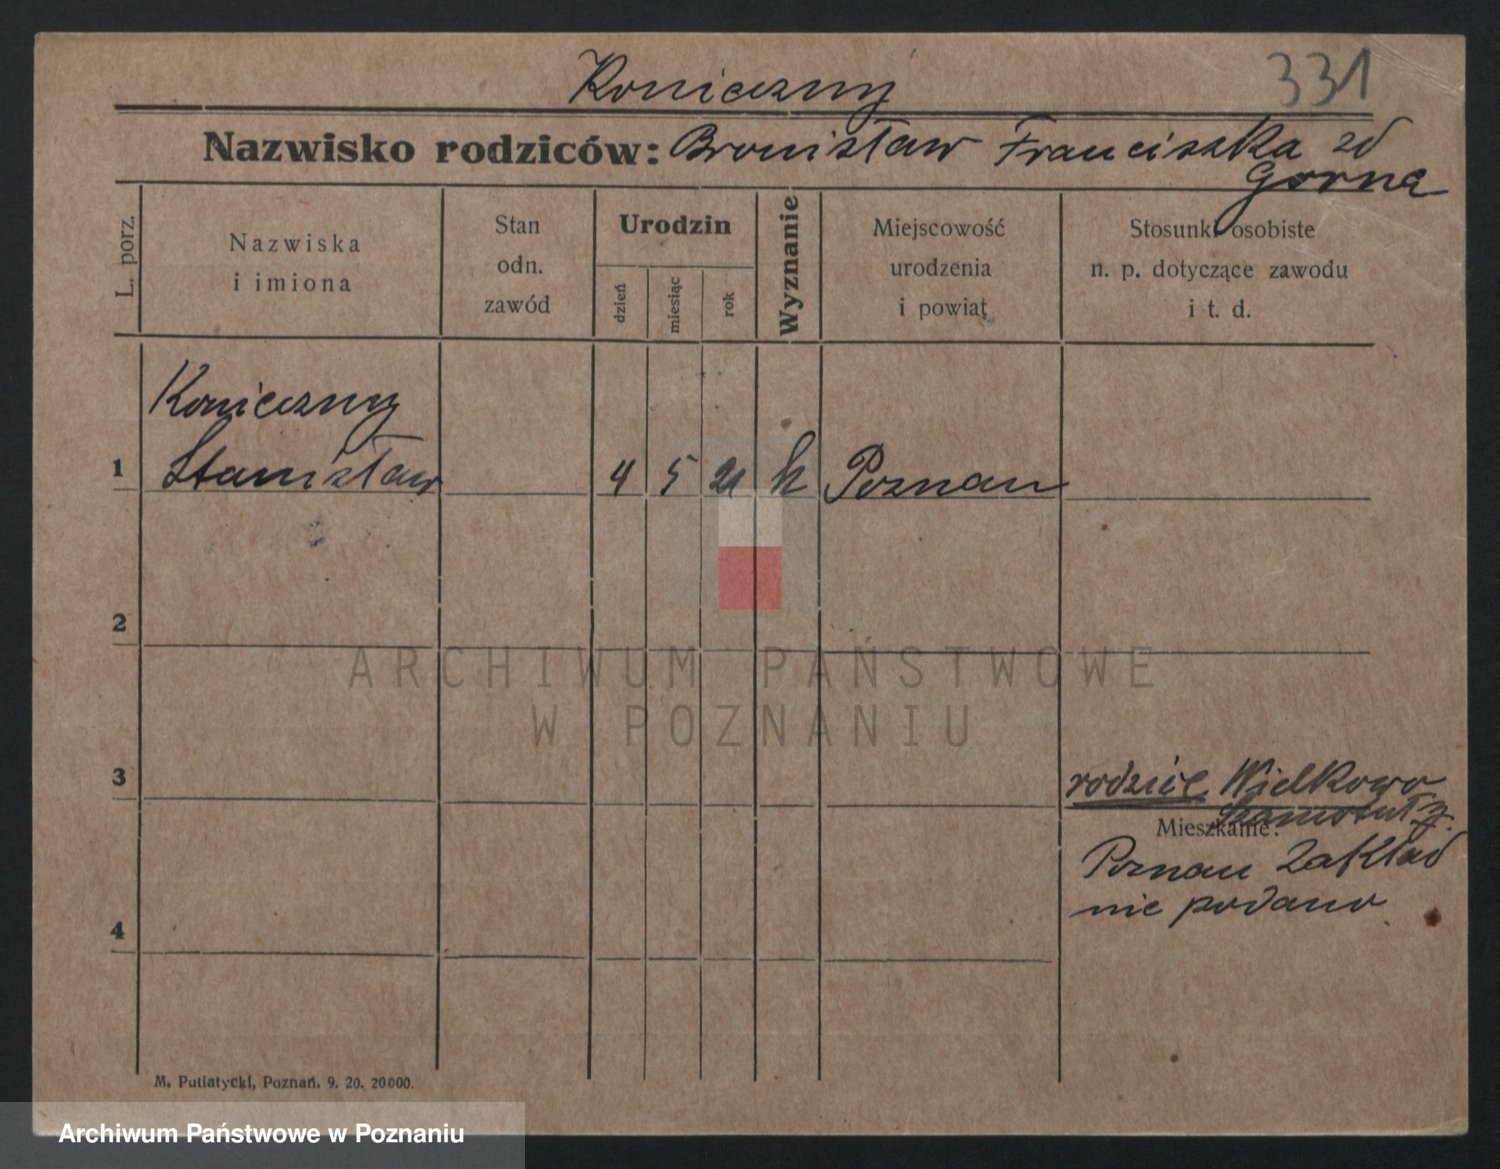 Konieczny
331
Nazwisko rodziców: Bronisław Franciszka zd
Gorna
L. porz.
Nazwiska
i imiona
Stan
odn.
zawód
Urodzin
dzień
miesiąc
rok
Wyznanie
Miejscowość
urodzenia
i powiat
Stosunki osobiste
n. p. dotyczące zawodu
i t. d.
Konieczny
1 Stanisław 4 5 21 k Poznan
2
ARCHIWUM PAŃSTWOWE
W POZNANIU
3
rodzice Wielkowo
Szamotuły
Mieszkanie:
Poznan Zakład
nie podano
4
M. Putiatycki, Poznań. 9. 20. 20000.
Archiwum Państwowe w Poznaniu